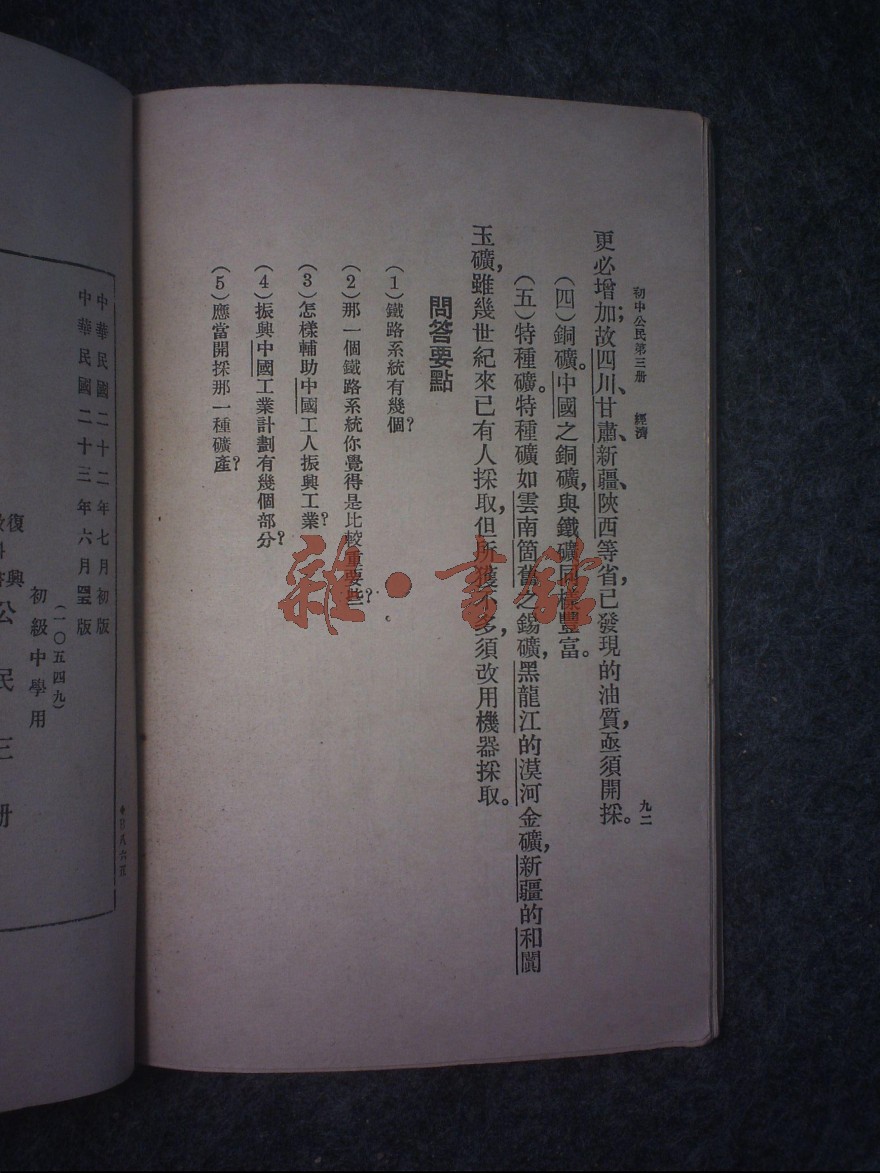 初中公民第三册 經濟 九二
更必增加;故四川、甘肅、新疆、陝西等省,已發現的油質,亟須開採。
(四)銅礦。中國之銅礦,與鐵礦同樣豐富。
(五)特種礦。特種礦如雲南箇舊之錫礦,黑龍江的漠河金礦,新疆的和闐
玉礦,雖幾世紀來已有人採取,但所獲不多,須改用機器採取。
問答要點
(1)鐵路系統有幾個?
(2)那一個鐵路系統你覺得是比較重要些?
(3)怎樣輔助中國工人振興工業?
(4)振興中國工業計劃有幾個部分?
(5)應當開採那一種礦產?
中華民國二十二年七月初版
中華民國二十三年六月四四版
(一〇五四九)
初級中學用
復興
公民三册
雜·書館